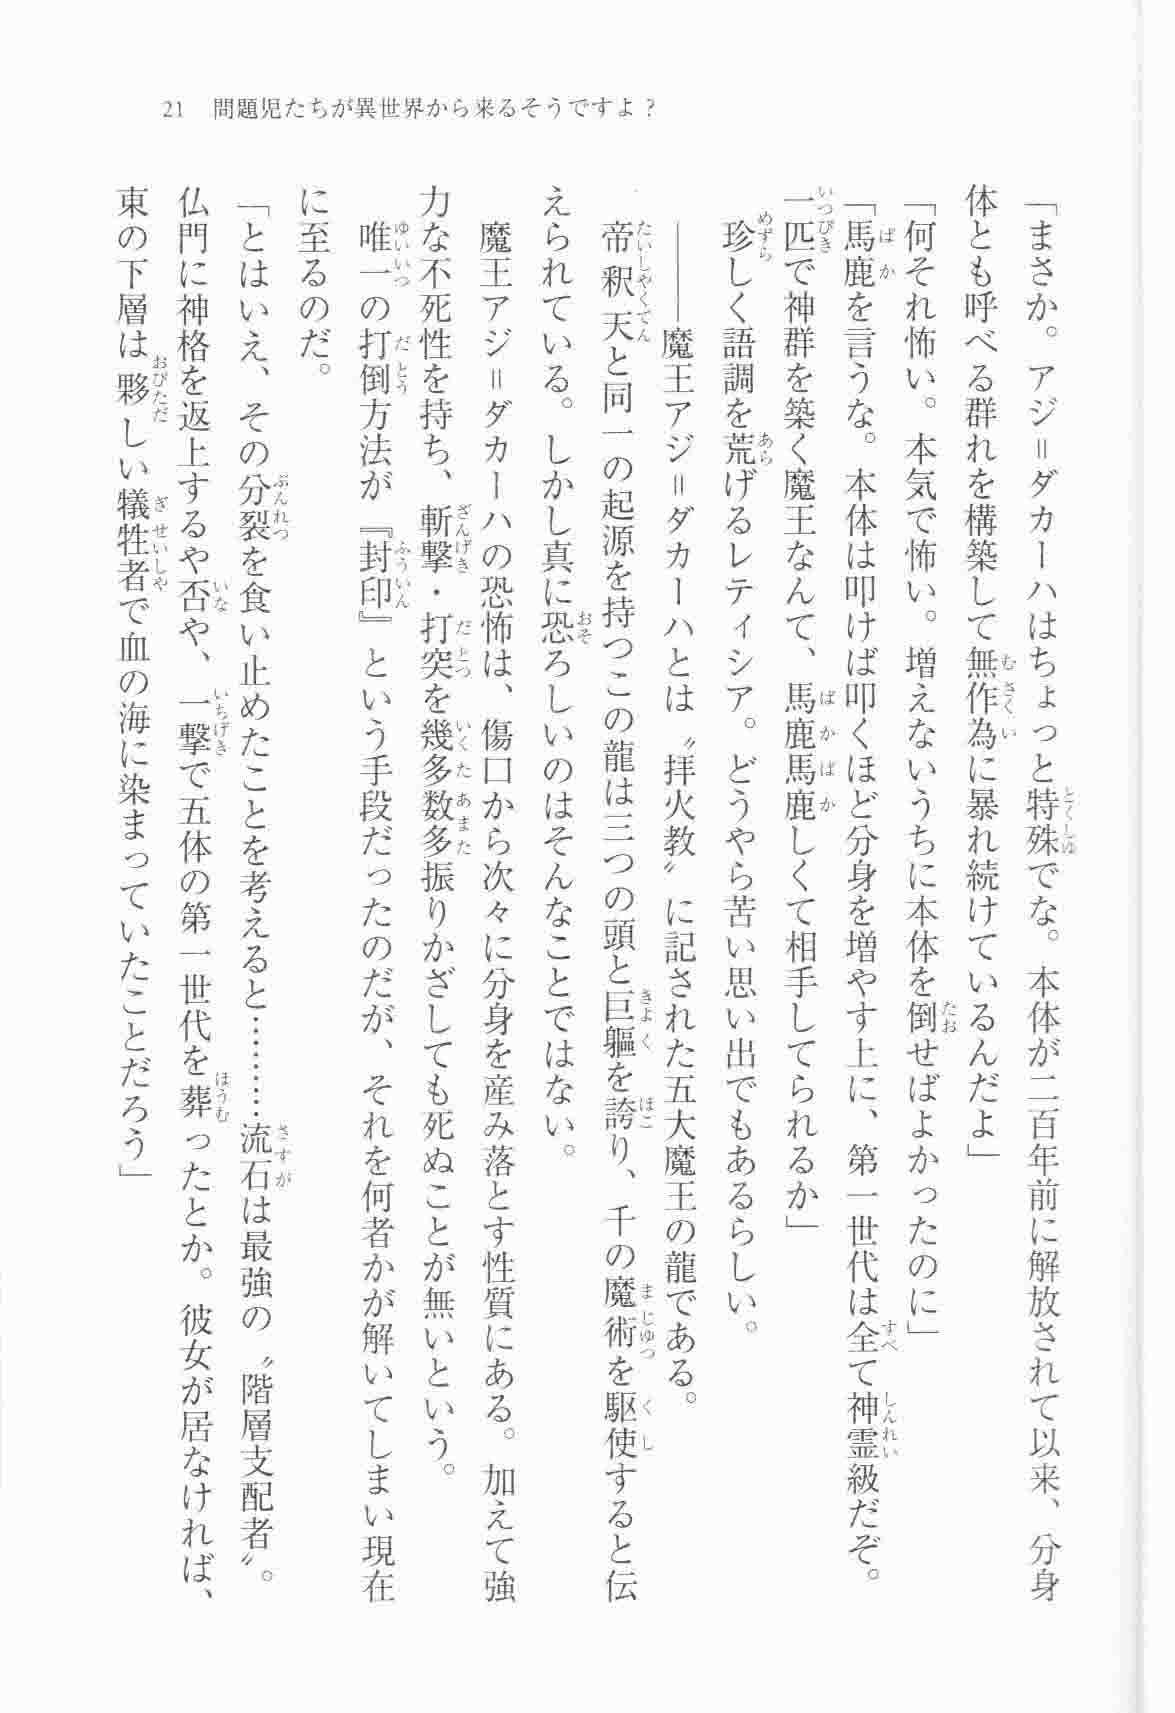 21 問題児たちが異世界から来るそうですよ？
「まさか。アジ＝ダカーハはちょっと特殊でな。本体が二百年前に解放されて以来、分身
体とも呼べる群れを構築して無作為に暴れ続けているんだよ」
「何それ怖い。本気で怖い。増えないうちに本体を倒せばよかったのに」
「馬鹿を言うな。本体は叩けば叩くほど分身を増やす上に、第一世代は全て神霊級だぞ。
一匹で神群を築く魔王なんて、馬鹿馬鹿しくて相手してられるか」
珍しく語調を荒げるレティシア。どうやら苦い思い出でもあるらしい。
――――魔王アジ＝ダカーハとは〝拝火教〟に記された五大魔王の龍である。
帝釈天と同一の起源を持つこの龍は三つの頭と巨軀を誇り、千の魔術を駆使すると伝
えられている。しかし真に恐ろしいのはそんなことではない。
魔王アジ＝ダカーハの恐怖は、傷口から次々に分身を産み落とす性質にある。加えて強
力な不死性を持ち、斬撃・打突を幾多数多振りかざしても死ぬことが無いという。
唯一の打倒方法が『封印』という手段だったのだが、それを何者かが解いてしまい現在
に至るのだ。
「とはいえ、その分裂を食い止めたことを考えると………流石は最強の〝階層支配者〟。
仏門に神格を返上するや否や、一撃で五体の第一世代を葬ったとか。彼女が居なければ、
東の下層は夥しい犠牲者で血の海に染まっていたことだろう」